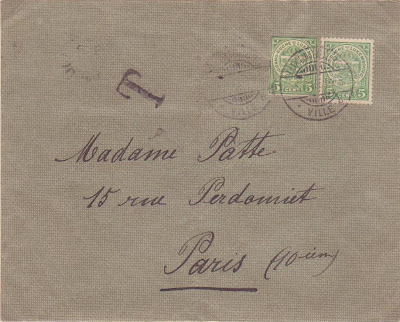 T
5 5
5 5
VILLE
Madame Patte
15 rue Perdonnet
Paris (10ième)